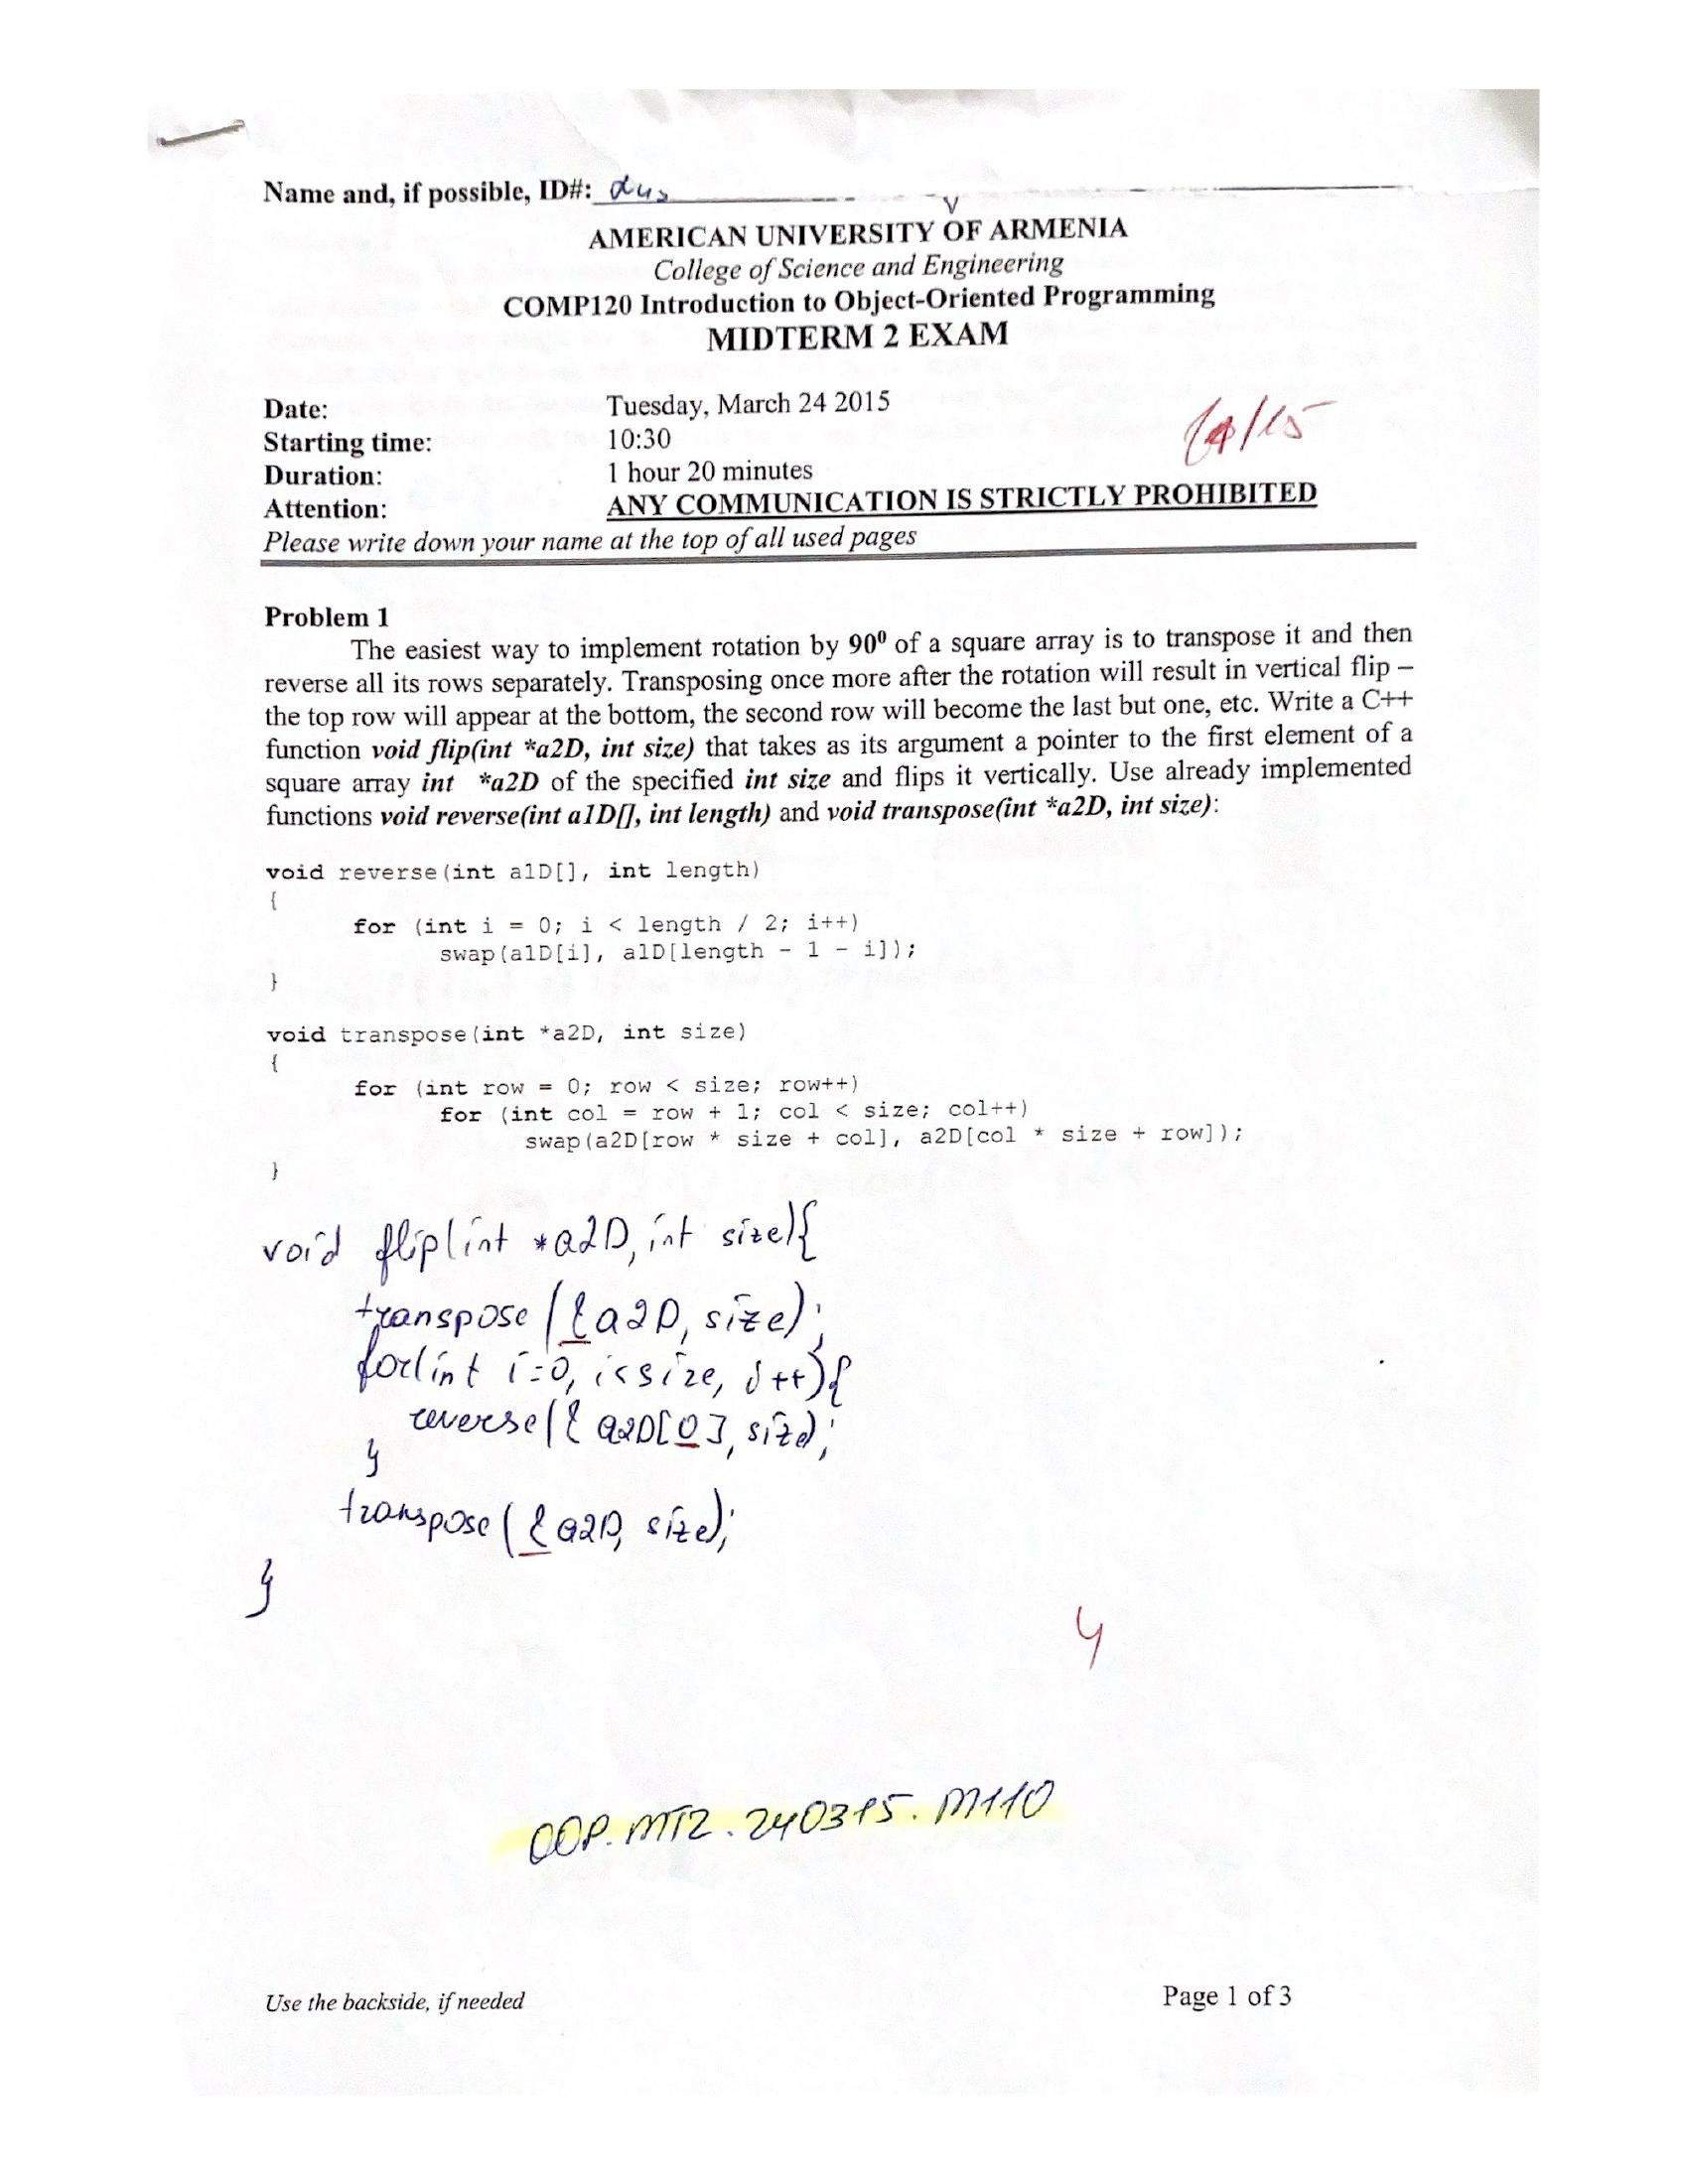 Name and, if possible, ID#:
AMERICAN UNIVERSITY OF ARMENIA
College of Science and Engineering
COMP120 Introduction to Object-Oriented Programming
MIDTERM 2 EXAM
Date: Tuesday, March 24 2015
Starting time: 10:30
Duration: 1 hour 20 minutes
Attention: ANY COMMUNICATION IS STRICTLY PROHIBITED
Please write down your name at the top of all used pages
Problem 1
The easiest way to implement rotation by 90⁰ of a square array is to transpose it and then
reverse all its rows separately. Transposing once more after the rotation will result in vertical flip –
the top row will appear at the bottom, the second row will become the last but one, etc. Write a C++
function void flip(int *a2D, int size) that takes as its argument a pointer to the first element of a
square array int *a2D of the specified int size and flips it vertically. Use already implemented
functions void reverse(int a1D[], int length) and void transpose(int *a2D, int size):
void reverse(int a1D[], int length)
{
for (int i = 0; i < length / 2; i++)
swap(a1D[i], a1D[length - 1 - i]);
}
void transpose(int *a2D, int size)
{
for (int row = 0; row < size; row++)
for (int col = row + 1; col < size; col++)
swap(a2D[row * size + col], a2D[col * size + row]);
}
void flip(int *a2D, int size){
transpose(&a2D, size);
for(int i=0, i<size, i++){
reverse(&a2D[0], size);
}
transpose(&a2D, size);
}
4
OOP.MT2.240315.M110
Use the backside, if needed
Page 1 of 3